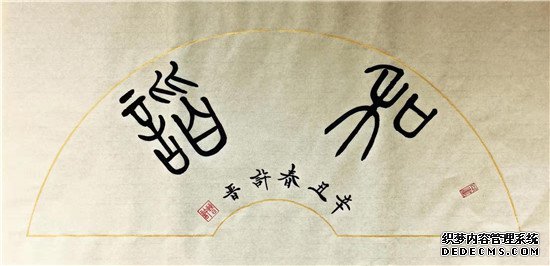 和諧
辛丑春許晋
织梦内容管理系统
DEDECMS.COM